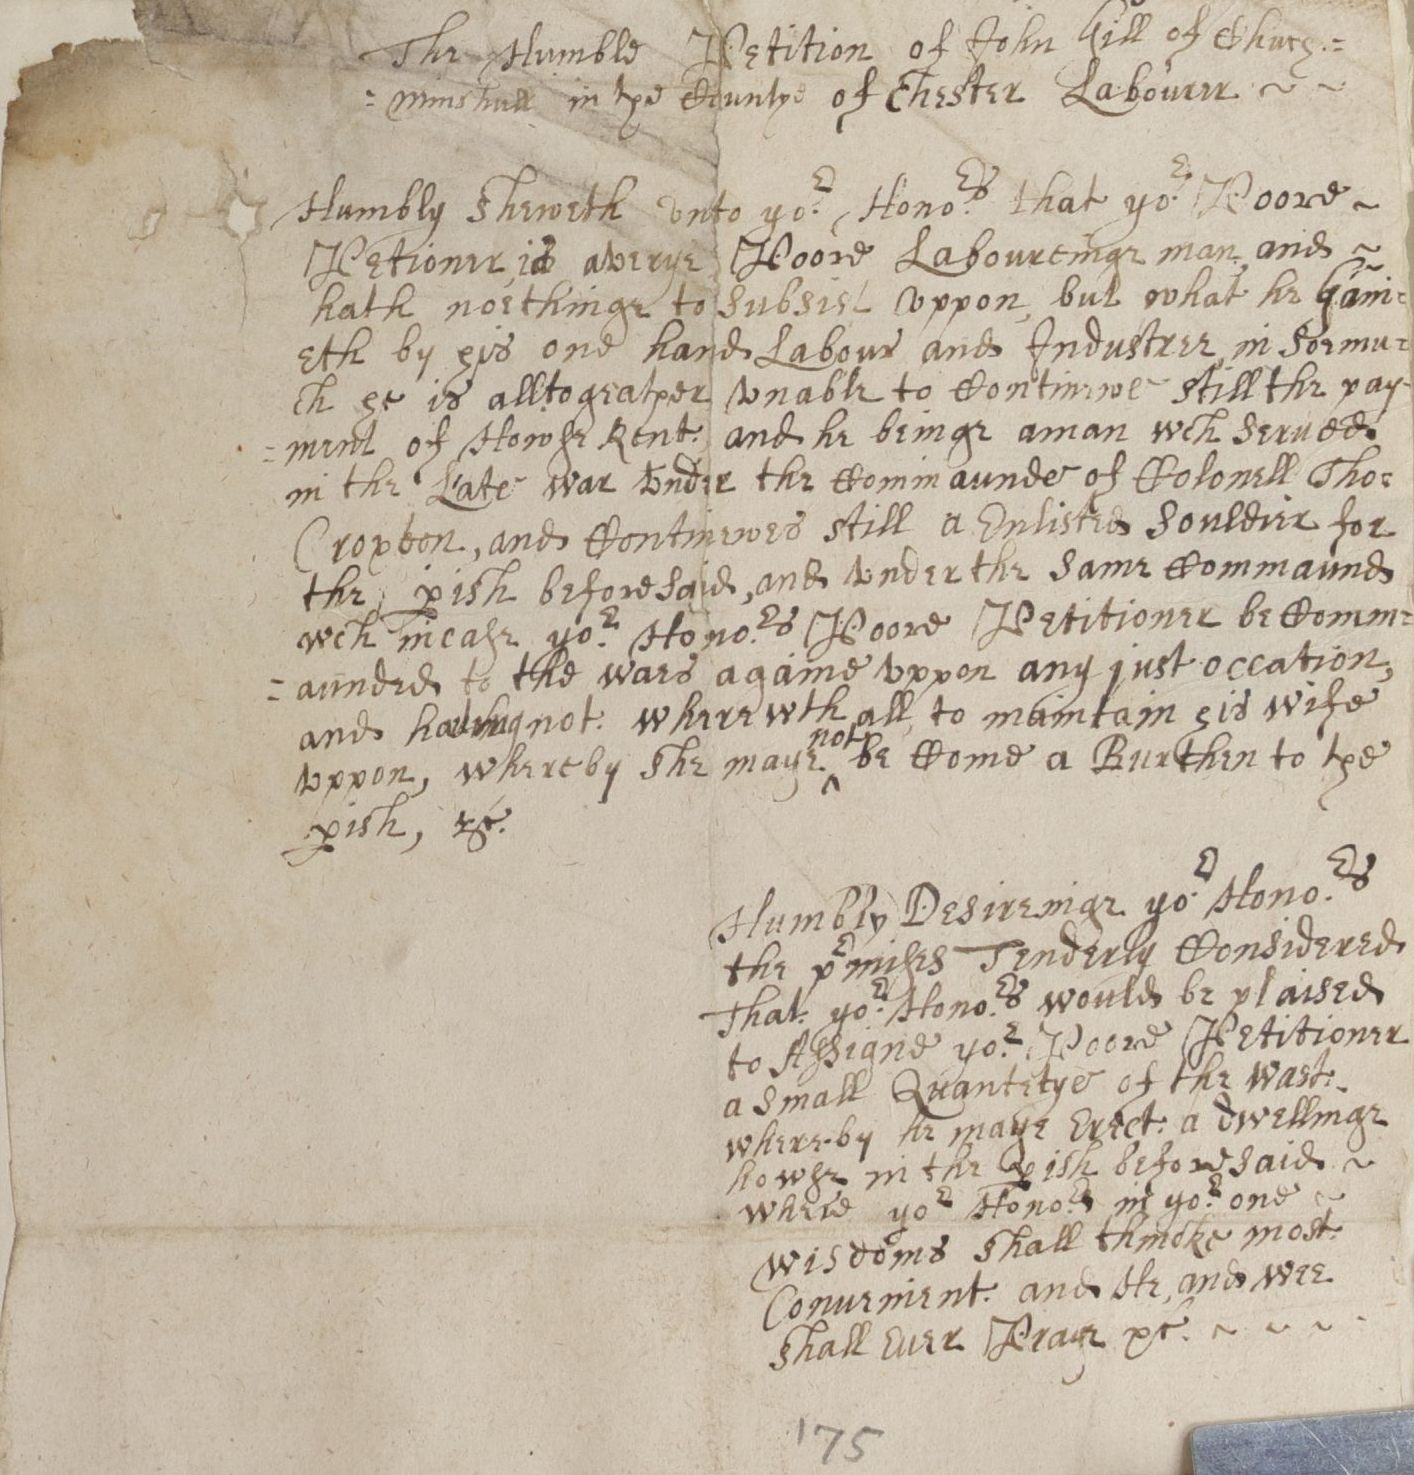 The Humble Petition of John Gill of Church=
=minshull in the Countye of Chester Labourer ~ ~
Humbly Sheweth vnto yor. Honors. that yor. Poore ~
Petioner, is averye Poore Laboureinge man, and ~
hath noethinge to Subsist vppon, but what he Gain=
eth by his one hand Labour and Industree, in Soemu=
ch he is alltogeather vnable to Continewe still the pay-
=ment of Howse Rent. and he beinge aman wch Serued
in the Late war vnder the Commaunde of Colonell Tho:
Croxton, and Continewes still a Enlisted Souldier for
the pish beforesaid, and vnder the Same Commaund
wch incase yor. Honors. Poore Petitioner be Comm=
=aunded to the wars againe vppon any just occation,
and having not. wherewth all, to maintain his wife
vppon, whereby she maye not be Come a Burthen to the
pish, &c.
Humbly Desireinge yor. Honors.
the prmises Tenderly Considered
That. yor. Honors. would be plaised
to Assigne yor. Poore Petitioner
a Small Quantetye of the wast.
whereby he maye Erect. a dwellinge
howse in the pish beforesaid ~
where yor Honors in yor. one ~
wisdoms shall thincke most.
Convenient. and He, and wee
shall Euer Praye &c. ~ ~ ~
175